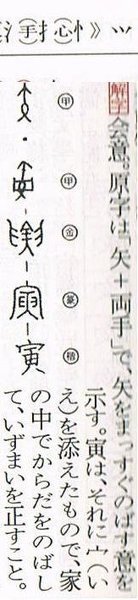 (手扌)(心忄)》
解字 会意。原字は「矢＋両手」で、矢をまっすぐのばす意を
示す。寅は、それに宀（い
え）を添えたもので、家
の中でからだをのばし
て、いずまいを正すこと。
甲 甲 金 篆 楷
寅